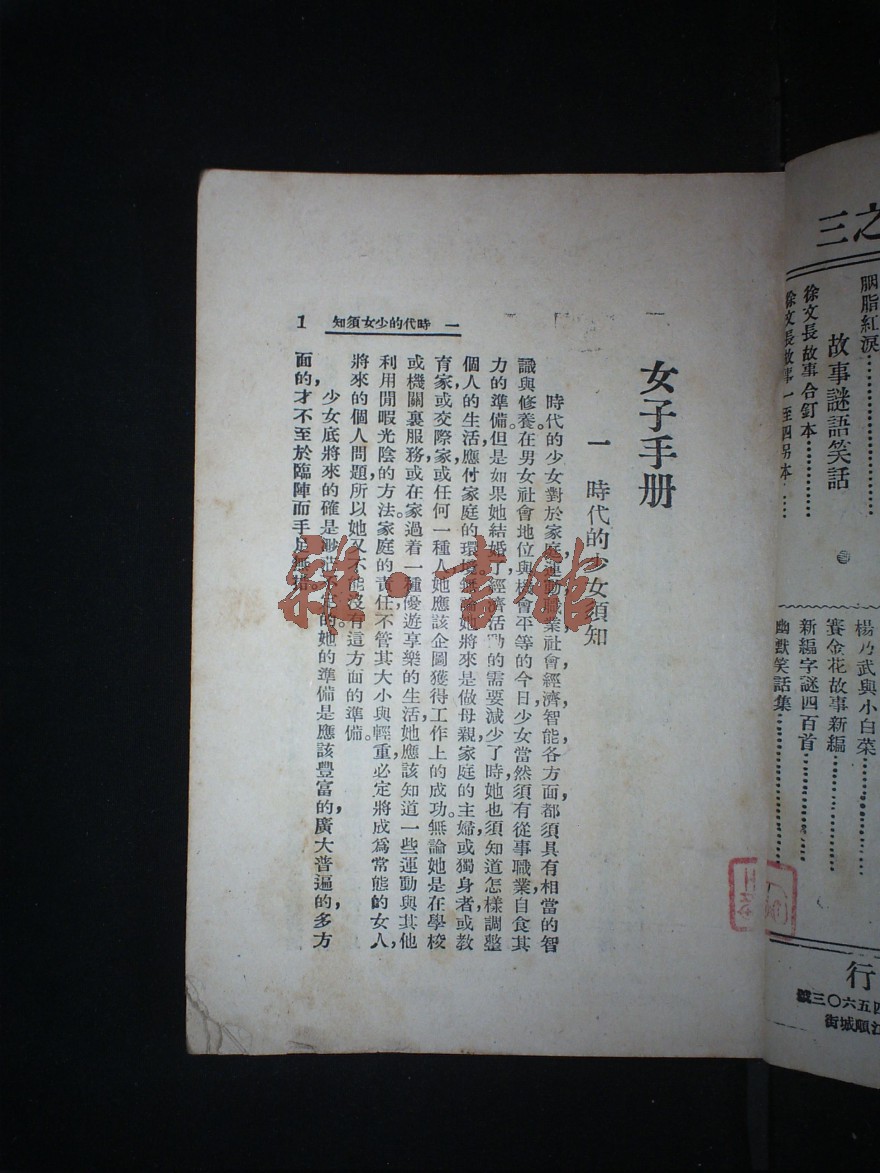 之三
胭脂紅淚
徐文長故事合訂本
徐文長故事一至四另本
故事謎語笑話
楊乃武與小白菜
賽金花故事新編
新編字謎四百首
幽默笑話集
行
四五六〇三號
順城街
女子手册
一 時代的少女須知
時代的少女對於家庭,運動,職業,社會,經濟,智能,各方面,都須具有相當的智
識與修養。在男女社會地位與機會平等的今日,少女當然須有從事職業,自食其
力的準備。但是如果她結婚了,經濟活動的需要減少了時,她也須知道怎樣調整
個人的生活,應付家庭的環境。無論她將來是做母親,家庭的主婦,或獨身者,或教
育家,或交際家,或任何一種人,她應該企圖獲得工作上的成功。無論她是在學校
或機關裏服務,或在家過着一種優遊享樂的生活,她應該知道一些運動與其他
利用閒暇光陰的方法。家庭的責任不管其大小與輕重,必定將成爲常態的女人,
將來的個人問題,所以她又不能沒有這方面的準備。
少女底將來的確是 的。她的準備是應該豐富的,廣大普遍的,多方
面的,才不至於臨陣而手足無措。
一 時代的少女須知
1
雜·書館